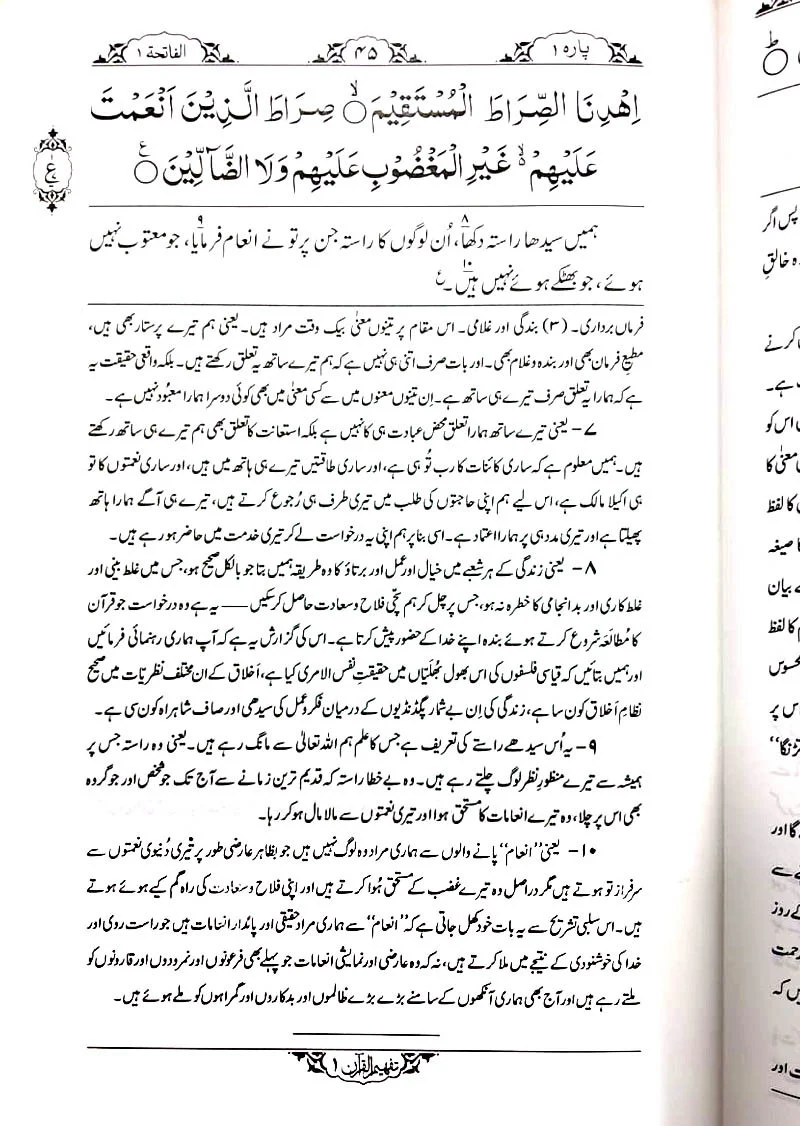 پارہ ۱
۴۵
الفاتحۃ ۱
اِهْدِنَا الصِّرَاطَ الْمُسْتَقِيْمَ ۙ صِرَاطَ الَّذِيْنَ اَنْعَمْتَ
عَلَيْهِمْ ۙ۬ غَيْرِ الْمَغْضُوْبِ عَلَيْهِمْ وَلَا الضَّآلِّيْنَ ۧ
ع
ہمیں سیدھا راستہ دکھا۸، اُن لوگوں کا راستہ جن پر تو نے انعام فرمایا۹، جو معتوب نہیں
ہوئے، جو بھٹکے ہوئے نہیں ہیں۱۰۔ ع
فرماں برداری۔ (۳) بندگی اور غلامی۔ اس مقام پر تینوں معنیٰ بیک وقت مراد ہیں۔ یعنی ہم تیرے پرستار بھی ہیں،
مطیعِ فرمان بھی اور بندہ و غلام بھی۔ اور بات صرف اتنی ہی نہیں ہے کہ ہم تیرے ساتھ یہ تعلق رکھتے ہیں۔ بلکہ واقعی حقیقت یہ
ہے کہ ہمارا یہ تعلق صرف تیرے ہی ساتھ ہے۔ اِن تینوں معنوں میں سے کسی معنیٰ میں بھی کوئی دوسرا ہمارا معبُود نہیں ہے۔
۷- یعنی تیرے ساتھ ہمارا تعلق محض عبادت ہی کا نہیں ہے بلکہ استعانت کا تعلق بھی ہم تیرے ہی ساتھ رکھتے
ہیں۔ ہمیں معلوم ہے کہ ساری کائنات کا رب تُو ہی ہے، اور ساری طاقتیں تیرے ہی ہاتھ میں ہیں، اور ساری نعمتوں کا تو
ہی اکیلا مالک ہے، اس لیے ہم اپنی حاجتوں کی طلب میں تیری طرف ہی رُجوع کرتے ہیں، تیرے ہی آگے ہمارا ہاتھ
پھیلتا ہے اور تیری مدد ہی پر ہمارا اعتماد ہے۔ اسی بنا پر ہم اپنی یہ درخواست لے کر تیری خدمت میں حاضر ہو رہے ہیں۔
۸- یعنی زندگی کے ہر شعبے میں خیال اور عمل اور برتاؤ کا وہ طریقہ ہمیں بتا جو بالکل صحیح ہو، جس میں غلط بینی اور
غلط کاری اور بد انجامی کا خطرہ نہ ہو، جس پر چل کر ہم سچّی فلاح و سعادت حاصل کر سکیں —— یہ ہے وہ درخواست جو قرآن
کا مُطالَعہ شروع کرتے ہوئے بندہ اپنے خدا کے حضور پیش کرتا ہے۔ اس کی گزارش یہ ہے کہ آپ ہماری رہنمائی فرمائیں
اور ہمیں بتائیں کہ قیاسی فلسفوں کی اس بھول بھلیّاں میں حقیقتِ نفس الامری کیا ہے، اَخلاق کے ان مختلف نظریّات میں صحیح
نظامِ اَخلاق کون سا ہے، زندگی کی اِن بے شمار پگڈنڈیوں کے درمیان فکر و عمل کی سیدھی اور صاف شاہراہ کون سی ہے۔
۹- یہ اُس سیدھے راستے کی تعریف ہے جس کا علم ہم اللہ تعالیٰ سے مانگ رہے ہیں۔ یعنی وہ راستہ جس پر
ہمیشہ سے تیرے منظورِ نظر لوگ چلتے رہے ہیں۔ وہ بے خطا راستہ کہ قدیم ترین زمانے سے آج تک جو شخص اور جو گروہ
بھی اس پر چلا، وہ تیرے انعامات کا مستحق ہوا اور تیری نعمتوں سے مالا مال ہو کر رہا۔
۱۰- یعنی ”انعام“ پانے والوں سے ہماری مراد وہ لوگ نہیں ہیں جو بظاہر عارضی طور پر تیری دُنیوی نعمتوں سے
سرفراز تو ہوتے ہیں مگر دراصل وہ تیرے غضب کے مستحق ہُوا کرتے ہیں اور اپنی فلاح و سعادت کی راہ گم کیے ہوئے ہوتے
ہیں۔ اس سلبی تشریح سے یہ بات خود کھل جاتی ہے کہ ”انعام“ سے ہماری مراد حقیقی اور پائدار انعامات ہیں جو راست روی اور
خدا کی خوشنودی کے نتیجے میں ملا کرتے ہیں، نہ کہ وہ عارضی اور نمایشی انعامات جو پہلے بھی فرعونوں اور نمرودوں اور قارونوں کو
ملتے رہے ہیں اور آج بھی ہماری آنکھوں کے سامنے بڑے بڑے ظالموں اور بدکاروں اور گمراہوں کو ملے ہوئے ہیں۔
تفہیم القرآن ۱
پس اگر
خالقِ
کرنے
ہے۔
اس کو
معنیٰ کا
کا لفظ
کا صیغہ
بیان
کا لفظ
اس پر
گا اور
سے
کے روز
رحمت
کہ
اور